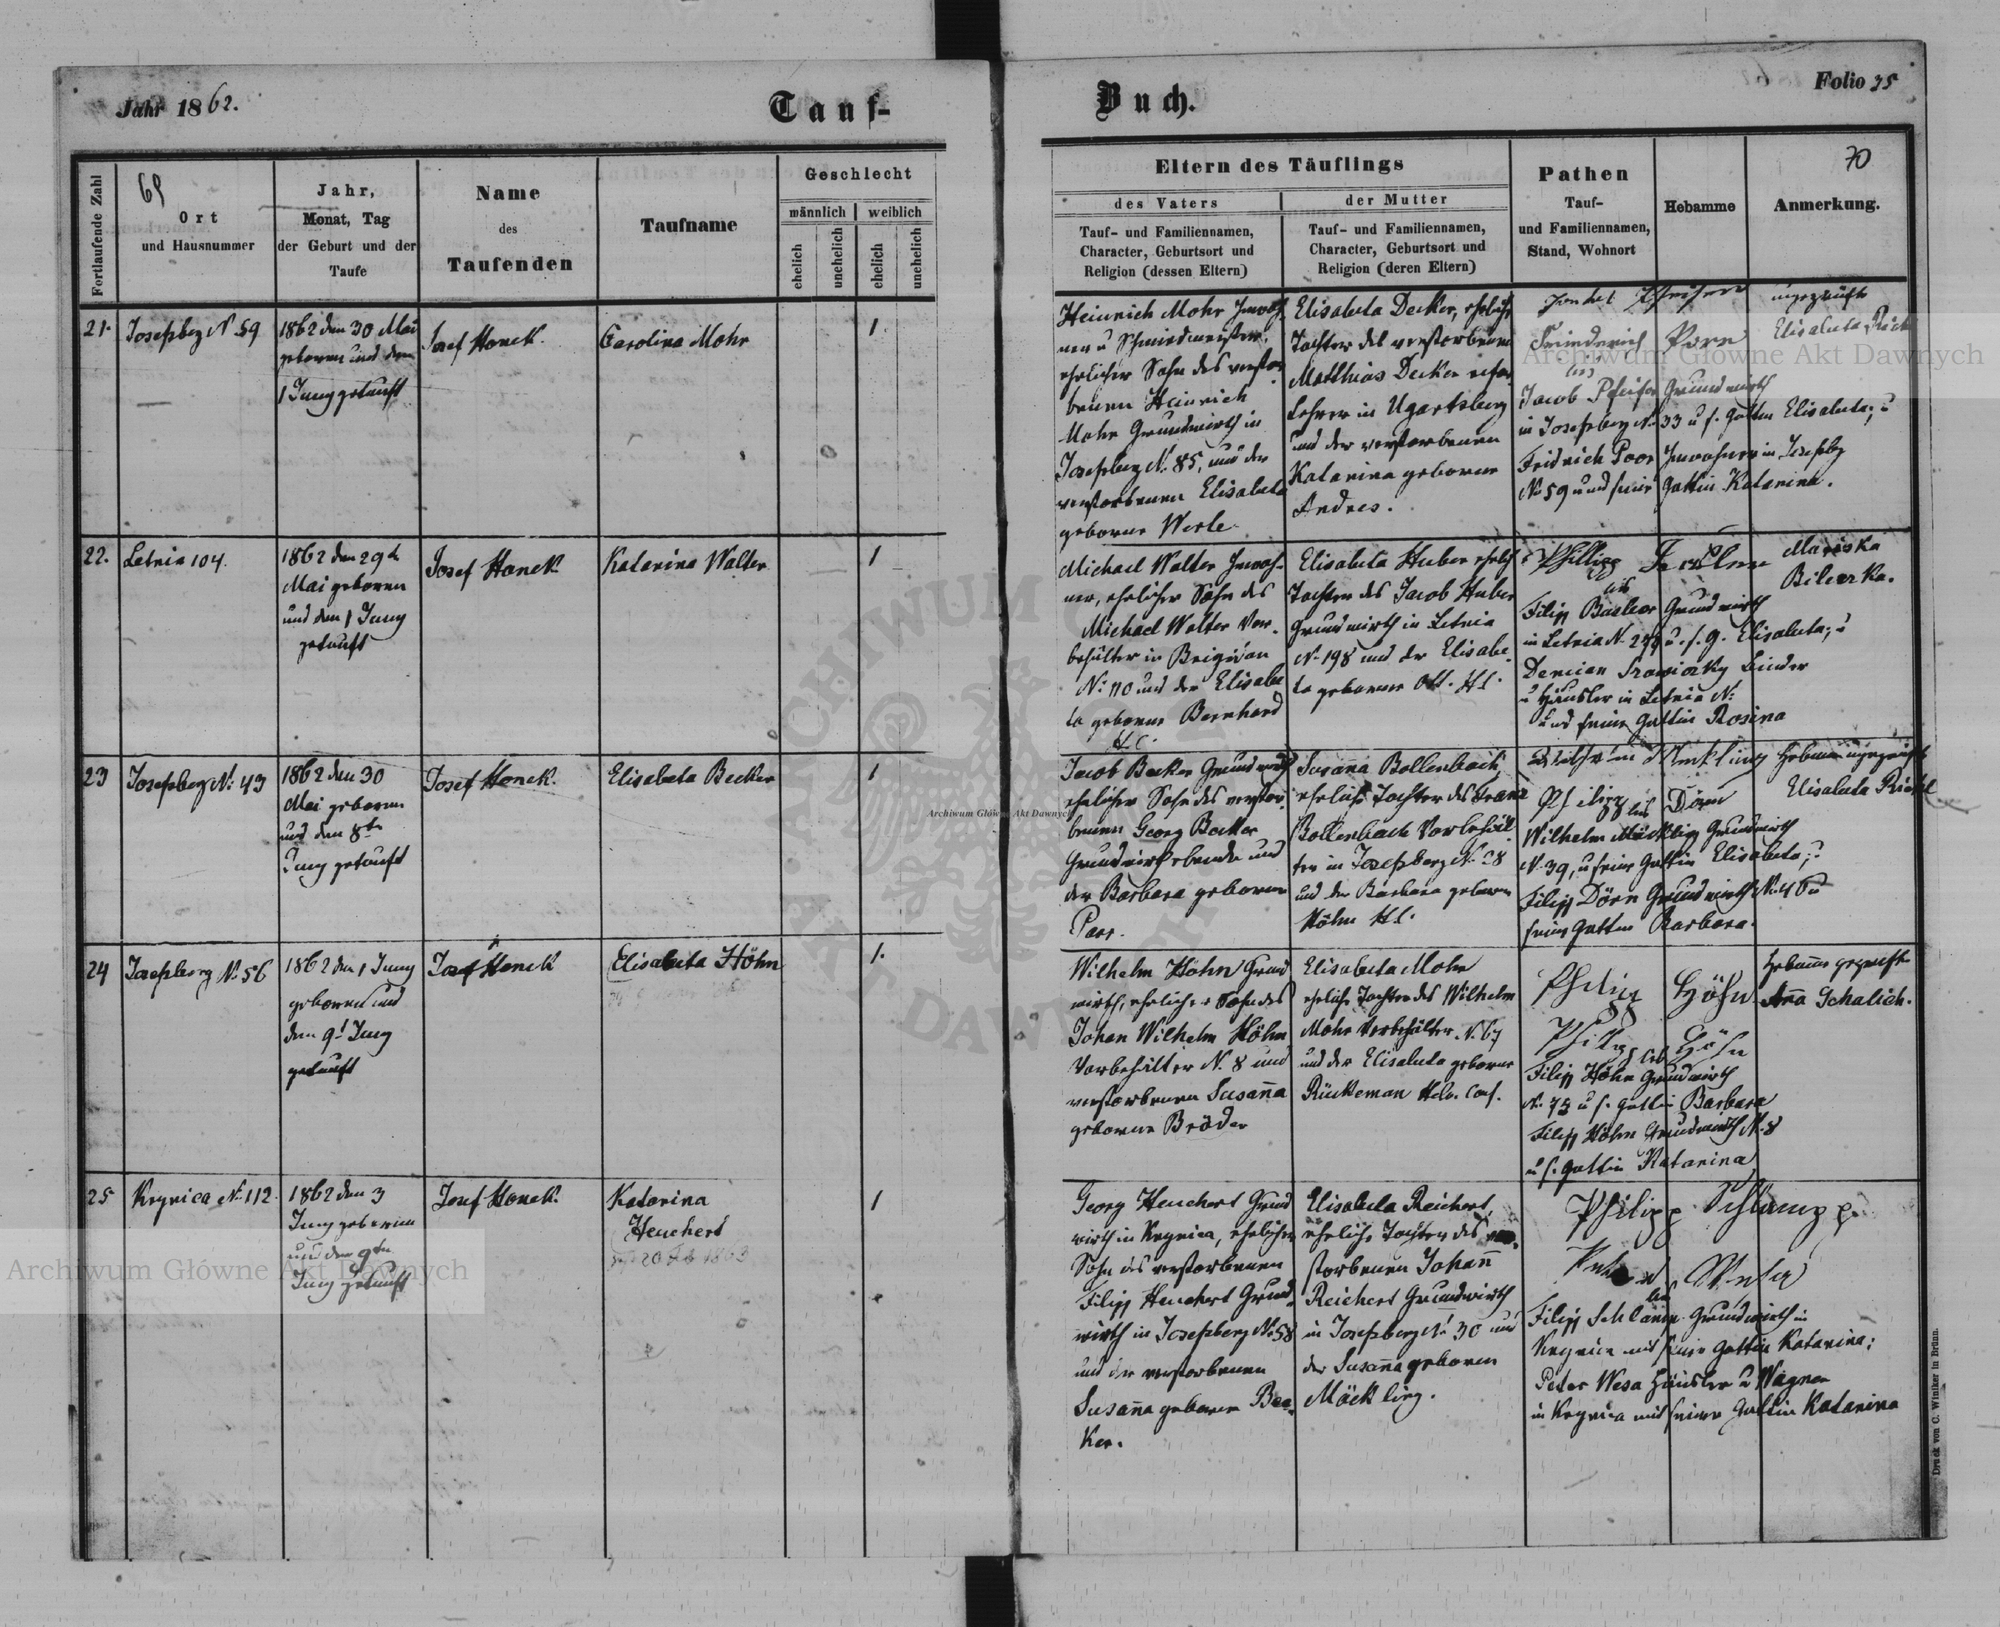 Jahr 1862.
Tauf-
Buch.
Folio 35
69
70
Fortlaufende Zahl
Ort
und Hausnummer
Jahr,
Monat, Tag
der Geburt und der
Taufe
Name
des
Taufenden
Taufname
Geschlecht
männlich
weiblich
ehelich
unehelich
ehelich
unehelich
Eltern des Täuflings
des Vaters
der Mutter
Tauf- und Familiennamen,
Character, Geburtsort und
Religion (dessen Eltern)
Tauf- und Familiennamen,
Character, Geburtsort und
Religion (deren Eltern)
Pathen
Tauf-
und Familiennamen,
Stand, Wohnort
Hebamme
Anmerkung.
21.
Josefsbg N. 59
1862 den 30 Mai
geboren und den
1 Juny getauft
Josef Honek.
Carolina Mohr
1
Heinrich Mohr Inwoh-
ner u Schmiedmeister,
ehelicher Sohn des verstor-
benen Heinrich
Mohr Grundwirth in
Josefsberg N. 85, und der
verstorbenen Elisabeta
geborne Werle.
Elisabeta Decker, eheliche
Tochter des verstorbenen
Matthias Decker
Lehrer in Ugartsberg
und der verstorbenen
Katarina geborne
Andres.
Friederich
Jacob Pfeifer Grundwirth
in Josefsberg N. 33 u s. Gattin Elisabeta; u
Fridrich Poor Inwohner in Josefsbg
N. 59 und seine Gattin Katarina.
ungeprüft
Elisabeta
22.
Letnia 104.
1862 den 29t
Mai geboren
und den 1 Juny
getauft
Josef Honek.
Katarina Walter
1
Michael Walter Inwoh-
ner, ehelicher Sohn des
Michael Walter Vor-
behälter in Brigidau
N. 110 und der Elisabe
ta geborne Bernhard
H.C.
Elisabeta Huber ehelich
Tochter des Jacob Huber
Grundwirth in Letnia
N. 198 und der Elisabe-
ta geborner Ott. H.C.
Phillipp
Filipp Grundwirth
in Letnia N. u. s. G. Elisabeta; u
Demian Binder
u Häusler in Letnia N:
und seine Gattin Rosina
Mariska
Bilerka.
23
Josefsberg N. 43
1862 den 30
Mai geboren
und den 8ten
Juny getauft
Josef Honek.
Elisabeta Becker
1
Jacob Becker Grundwirth
ehelicher Sohn des verstor-
benen Georg Becker
Grundwirth ebenda und
der Barbara geborne
Parr.
Susanna Bollenbach
eheliche Tochter des Franz
Bollenbach Vorbehäl-
ter in Josefsberg N. 28
und der Barbara geborn
Höhn H.C.
Philipp Dörn
Wilhelm Möckling Grundwirth
N. 39, u seine Gattin Elisabeta; u
Filipp Dörn Grundwirth
seine Gattin Barbara.
Hebamme ungeprüft
Elisabeta
24
Josefsberg N. 56
1862 den 1 Juny
geboren und
den 9t Juny
getauft
Josef Honek
Elisabeta Höhn
1.
Wilhelm Höhn Grund
wirth, ehelicher Sohn des
Johan Wilhelm Höhn
Vorbehälter N. 8 und
verstorbenen Susanna
geborne Bröder
Elisabeta Mohr
eheliche Tochter des Wilhelm
Mohr Vorbehälter N. 67
und der Elisabeta geborne
Rückeman Helv. Conf.
Philipp Höhn
Philipp Höhn
Filipp Höhn Grundwirth
N. 75 u s. Gattin Barbara
Filipp Höhn Grundwirth N. 8
u s. Gattin Katarina
Hebamme geprüft
Anna Schalich.
25
Krynica N. 112
1862 den 3
Juny geboren
und den 9ten
Juny getauft
Josef Honek.
Katarina
Heuchert
1
Georg Heuchert Grund
wirth in Krynica, ehelicher
Sohn des verstorbenen
Filipp Heuchert Grund-
wirth in Josefsberg N. 58
und der verstorbenen
Susanna geborne Bec-
ker.
Elisabeta Reichert,
eheliche Tochter des ver-
storbenen Johann
Reichert Grundwirth
in Josefsberg N. 30 und
der Susanna geboren
Möckling.
Philipp Schlamp
Filipp Schlamp Grundwirth in
Krynica mit seine Gattin Katarina;
Peter Wesa Häusler u Wagner
in Krynica mit seiner Gattin Katarina
Druck von C. Winiker in Brünn.
Archiwum Główne Akt Dawnych
Archiwum Główne Akt Dawnych
Archiwum Główne Akt Dawnych